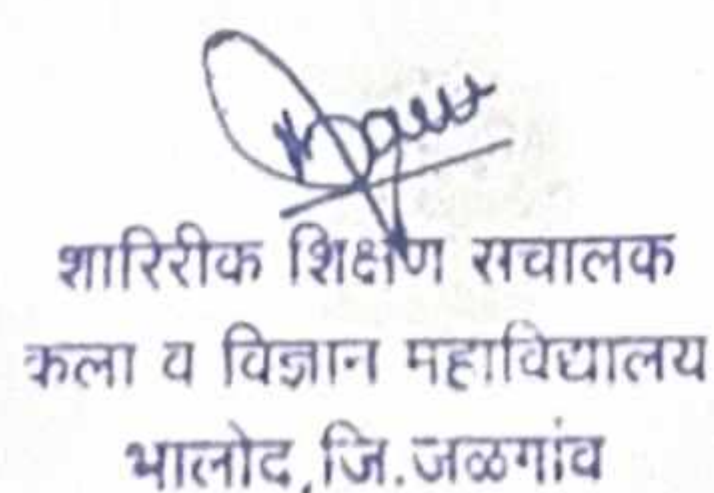 शारिरीक शिक्षण सचालक
कला व विज्ञान महाविद्यालय
भालोद,जि.जळगांव